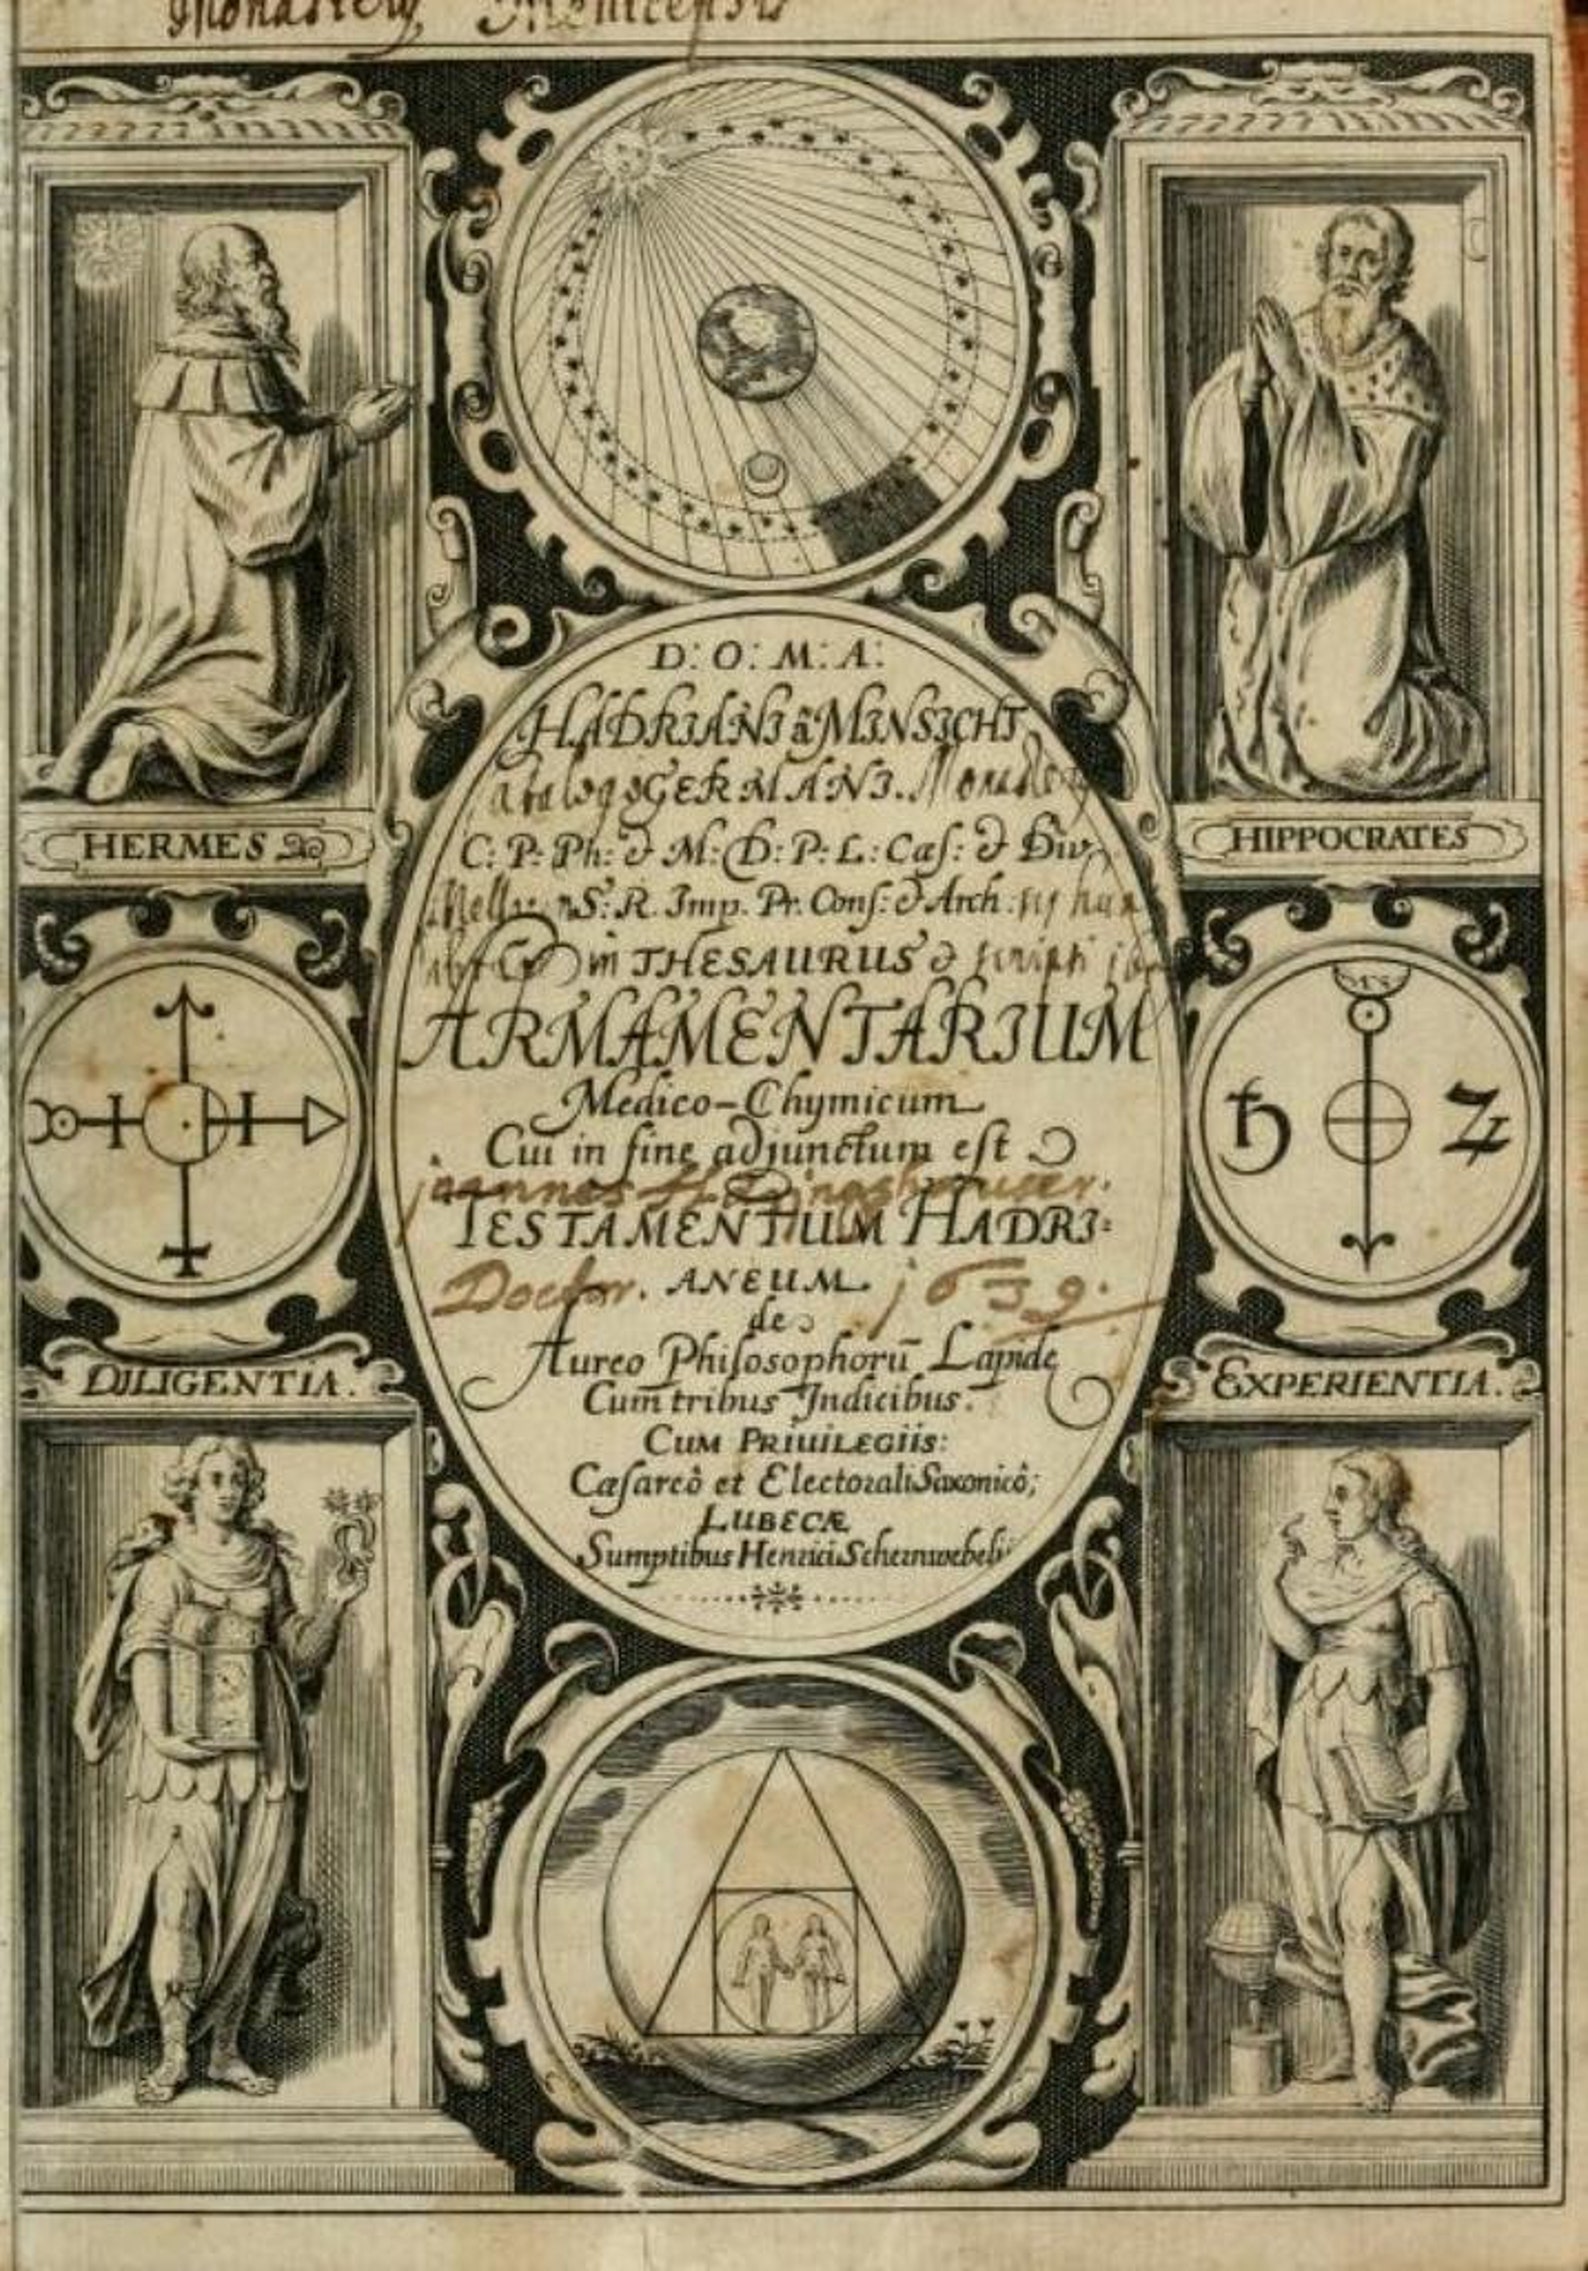 Monasterij
D: O: M: A:
HADRIANI à MINSICHT
GERMANI.
C: P: Ph: & M: D: P: L: Cæſ: &
S: R. Imp. Pr. Conſ: & Arch:
THESAURUS &
ARMAMENTARIUM
Medico-Chymicum
Cui in fine adjunctum eſt
joannes
TESTAMENTUM HADRI=
Doctor. ANEUM. 1639.
de
Aureo Philosophorū Lapide
Cum tribus Indicibus.
CUM PRIUILEGIIS:
Cæſareô et Electorali Saxonicô;
LUBECÆ
Sumptibus Henrici Schernwebelii
HERMES
HIPPOCRATES
♄ ♃
DILIGENTIA.
EXPERIENTIA.